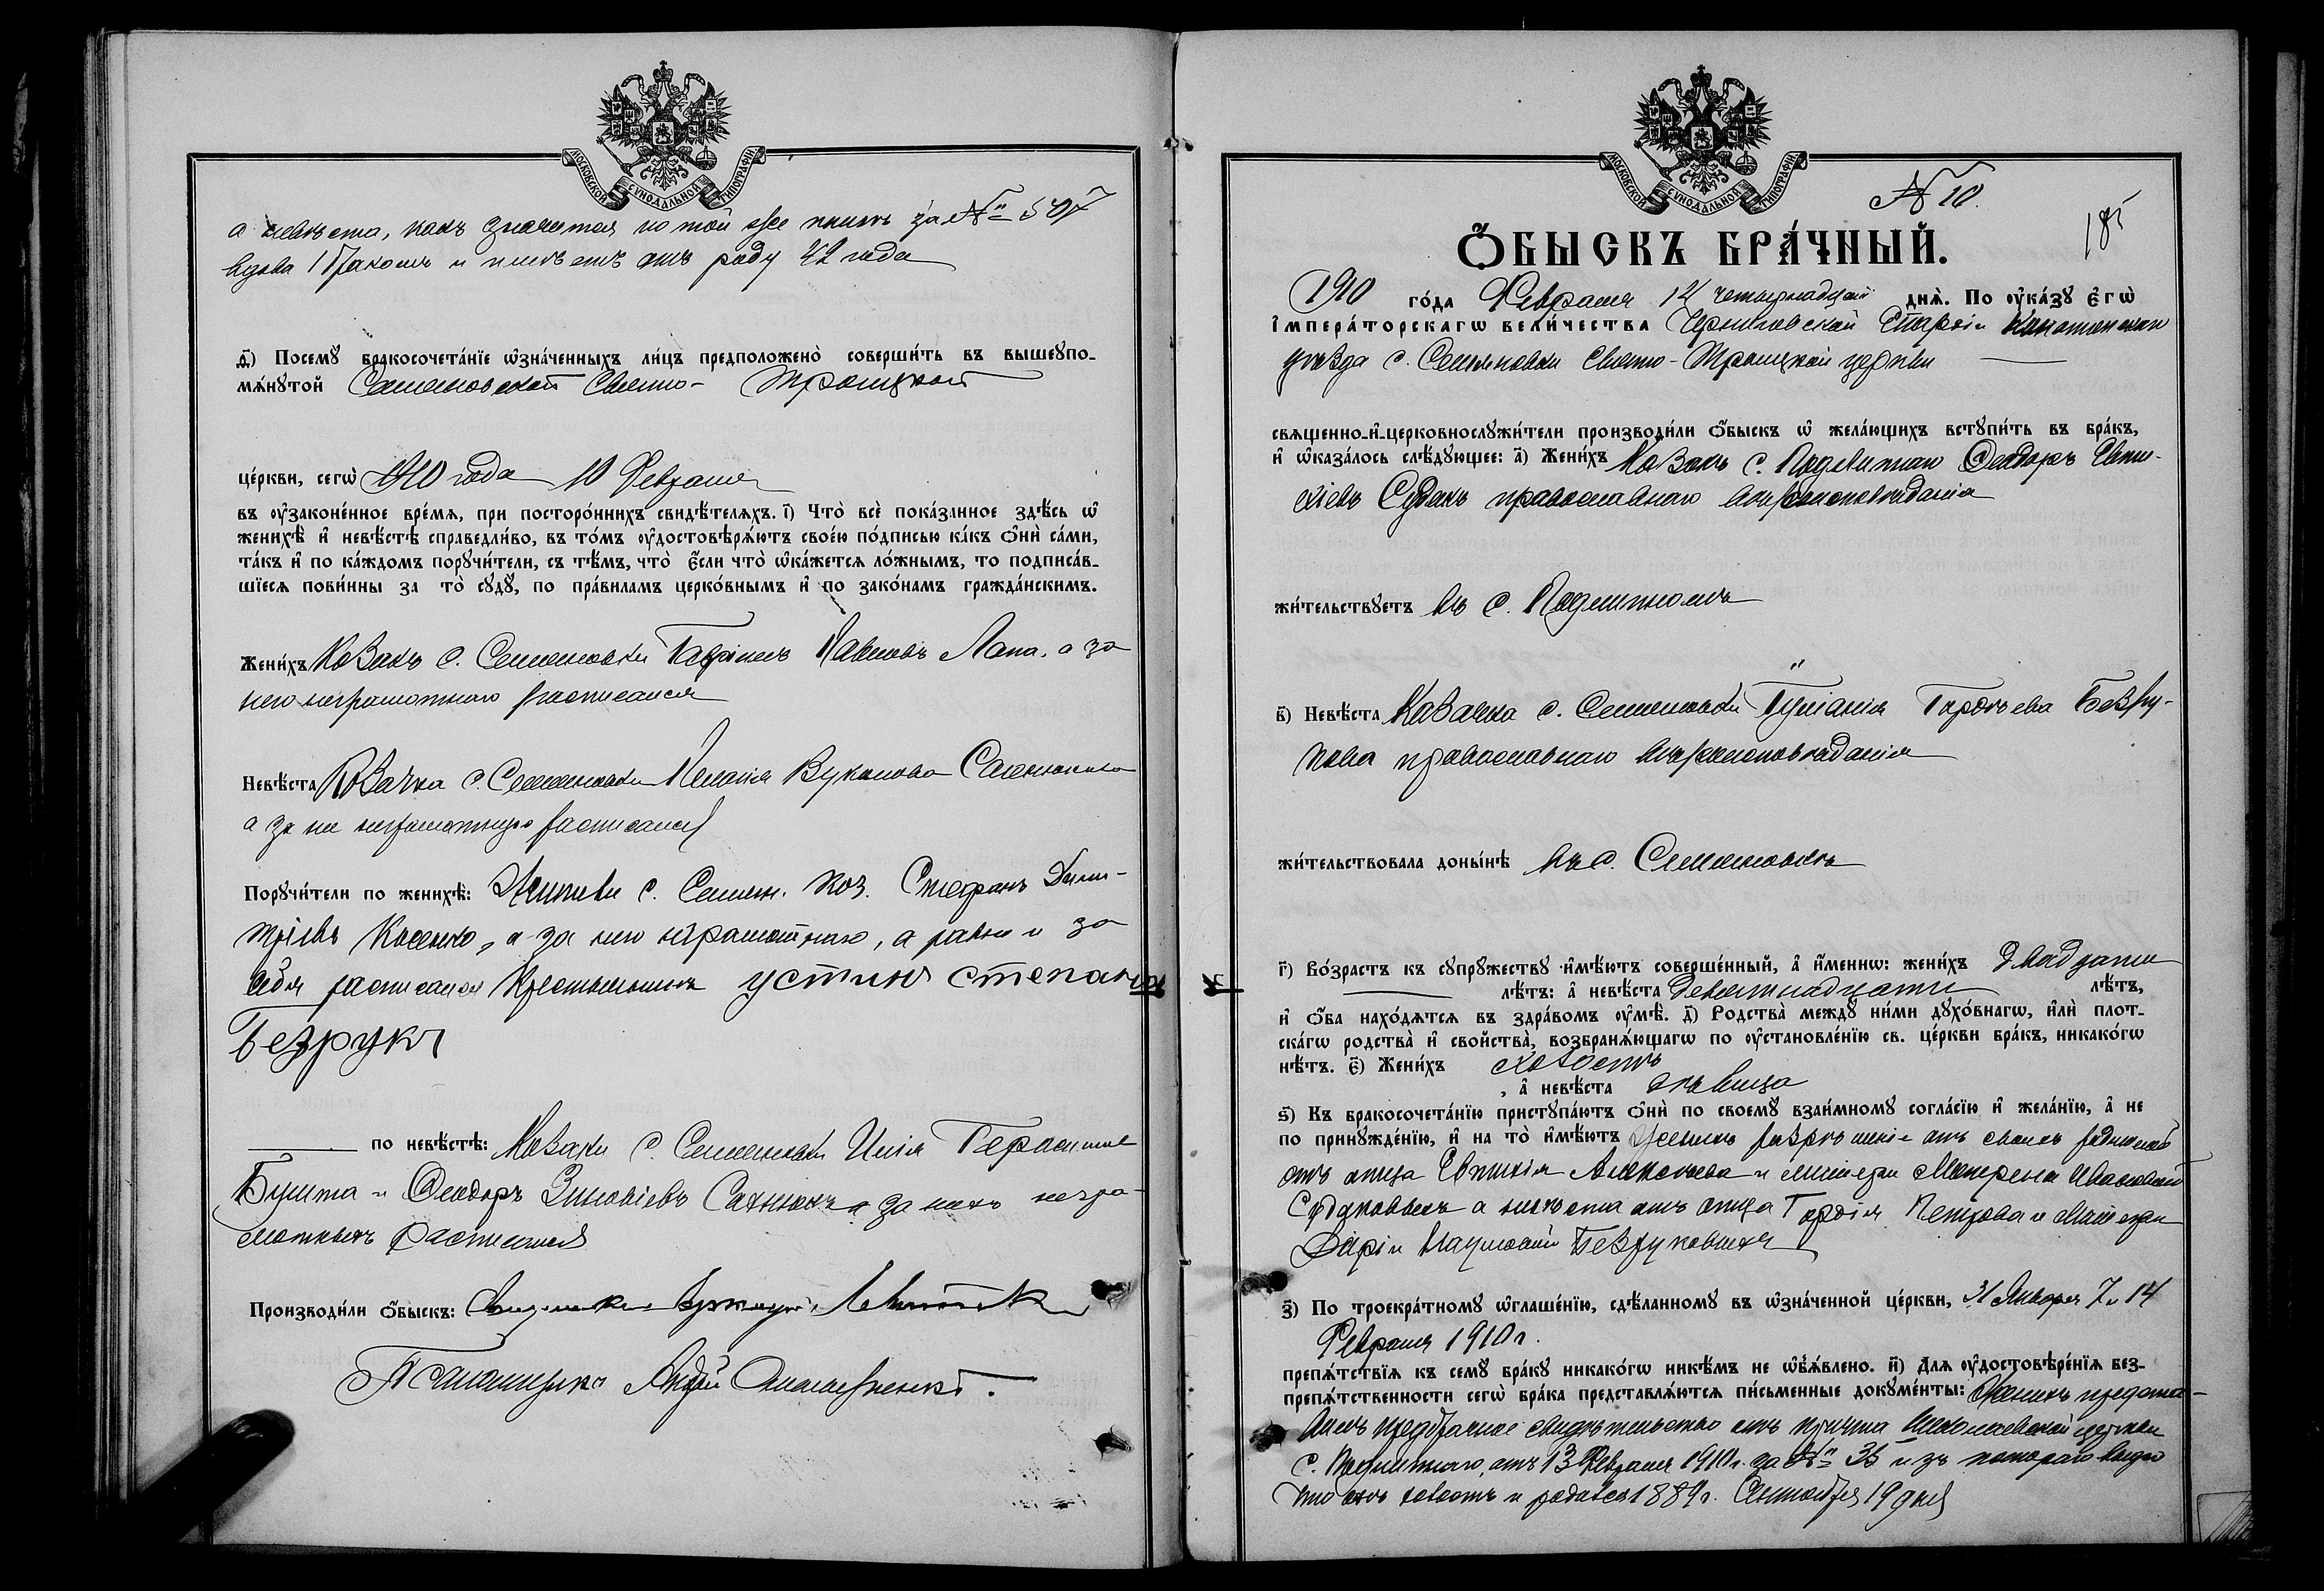 МОСКОВСКОЙ СѴНОДАЛЬНОЙ ТИПОГРАФІИ
а невѣста, какъ значится по той же книгѣ за № 507
вдова 1 бракомъ и имѣетъ отъ роду 42 года
д҃і) Посемꙋ бракосочета́нїе ѡ҆зна́ченныхъ ли́цъ предположено̀ соверши́ть въ вышеꙋпо-
мѧ́нꙋтой Семеновской Свято- Троицкой
це́ркви, сегѡ̀ 1910 года 10 Февраля
въ ᲂу҆законе́нное вре́мѧ, при посторо́ннихъ свидѣ́телѧхъ. і҃) Что̀ всѐ пока́занное здѣ́сь ѡ҆
женихѣ̀ и҆ невѣ́стѣ справедли́во, въ то́мъ ᲂу҆достовѣрѧ́ютъ свое́ю по́дписью ка́къ ѻ҆нѝ са́ми,
та́къ и҆ по ка́ждомъ порꙋчи́тели, съ тѣ́мъ, что̀ є҆́сли что̀ ѡ҆ка́жетсѧ ло́жнымъ, то подписа́в-
шїесѧ пови́нны за то̀ сꙋдꙋ̀, по пра́виламъ церко́внымъ и҆ по зако́намъ гражда́нскимъ.
Жени́хъ Козакъ с. Семеновки Гавріилъ Павловъ Лапа, а за
него неграмотнаго росписался
Невѣ́ста Козачка с. Семеновки Пелагія
а за не неграмотную росписался
Порꙋчи́тели по женихѣ̀: с. Семен. коз. Стефанъ Дими-
тріевъ Косенко, а за него неграмотнаго, а равно и за
себя росписался Крестьянинъ Устинъ Степанов
Безрукъ
по невѣ́стѣ: Козаки с. Семеновки Илія Герасимов
и Феодоръ Зиновіевъ Сахнюкъ а за нихъ негра-
мотныхъ росписался
Производи́ли ѻ҆́быскъ: Священникъ
Псаломщикъ Андрей
МОСКОВСКОЙ СѴНОДАЛЬНОЙ ТИПОГРАФІИ
№ 10.
185
Ѻ҆́БЫСКЪ БРА́ЧНЫЙ.
1910 го́да Февраля 14 четырнадцатаго днѧ̀. По ᲂу҆ка́зꙋ є҆гѡ̀
і҆мпера́торскагѡ вели́чества Черниговской Епархіи Конотопскаго
уѣзда с. Семяновки Свято-Троицкой церкви
свѧщенно-и҆-церковнослꙋжи́тели производи́ли ѻ҆́быскъ ѡ҆ жела́ющихъ встꙋпи́ть въ бра́къ,
и҆ ѡ҆каза́лось слѣ́дꙋющее: а҃) Жени́хъ Козакъ с. Подлипнаго Феодоръ Евти-
хіевъ Судакъ православнаго вѣроисповѣданія
жи́тельствꙋетъ въ с. Подлипномъ
в҃) Невѣ́ста Козачка с. Семеновки Гордѣева Безру-
кова православнаго вѣроисповѣданія
жи́тельствовала доны́нѣ въ с. Семеновкѣ
г҃) Во́зрастъ къ сꙋпрꙋжествꙋ и҆мѣ́ютъ соверше́нный, а҆ и҆́меннѡ: жени́хъ двадцати
лѣ́тъ: а҆ невѣ́ста девятнадцати лѣ́тъ,
и҆ ѻ҆́ба нахо́дѧтсѧ въ здра́вомъ ᲂу҆мѣ̀. д҃) Родства̀ междꙋ̀ ни́ми дꙋхо́внагѡ, и҆лѝ плот-
ска́гѡ родства̀ и҆ свойства̀, возбранѧ́ющагѡ по ᲂу҆становле́нїю св. це́ркви бра́къ, никако́гѡ
нѣ́тъ. є҃) Жени́хъ холостъ
, а҆ невѣ́ста дѣвица
ѕ҃) Къ бракосочета́нїю пристꙋпа́ютъ ѻ҆нѝ по своемꙋ̀ взаи́мномꙋ согла́сїю и҆ жела́нїю, а҆ не
по принꙋжде́нїю, и҆ на то̀ и҆мѣ́ютъ разрѣшеніе отъ своихъ родителей
отъ отца Евтихія и матери Ивановой
Судаковыхъ а невѣста отъ отца Гордія Петрова и матери
Даріи Наумовой Безруковыхъ
з҃) По троекра́тномꙋ ѡ҆глаше́нїю, сдѣ́ланномꙋ въ ѡ҆зна́ченной це́ркви, 31 Января 7 и 14
Февраля 1910 г.
препѧ́тствїѧ къ семꙋ̀ бра́кꙋ никако́гѡ никѣ́мъ не ѡ҆б̾ѧ́влено. и҃) Длѧ ᲂу҆достовѣре́нїѧ без-
препѧ́тственности сегѡ̀ бра́ка представлѧ́ютсѧ пи́сьменные докꙋме́нты: Женихъ предста-
вилъ предбрачное свидѣтельство отъ причта Николаевской церкви
с. Подлипнаго, отъ 13 Февраля 1910 г. за № 36 изъ котораго видно
что онъ холостъ и родился 1889 г. Сентября 19 дня